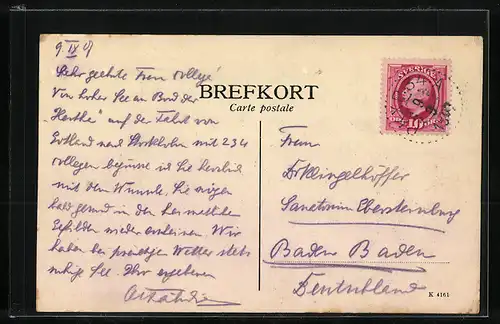 9. IX
Sehr geehrte Frau Kollege
Von hoher See an Bord der
Hertha" auf der Fahrt von
Gotland nach Stockholm mit 234
Kollegen begrüsse ich Sie herzlich
mit dem Wunsche, Sie mögen
bald gesund in den heimatlichen
Gefilden wieder erscheinen. Wir
haben bei prächtigem Wetter stets
ruhige See. Ihr ergebener
BREFKORT
Carte postale
SVERIGE
10
Frau
Dr Klingelhöffer
Sanatorium Ebersteinburg
Baden Baden
Deutschland
K 4161